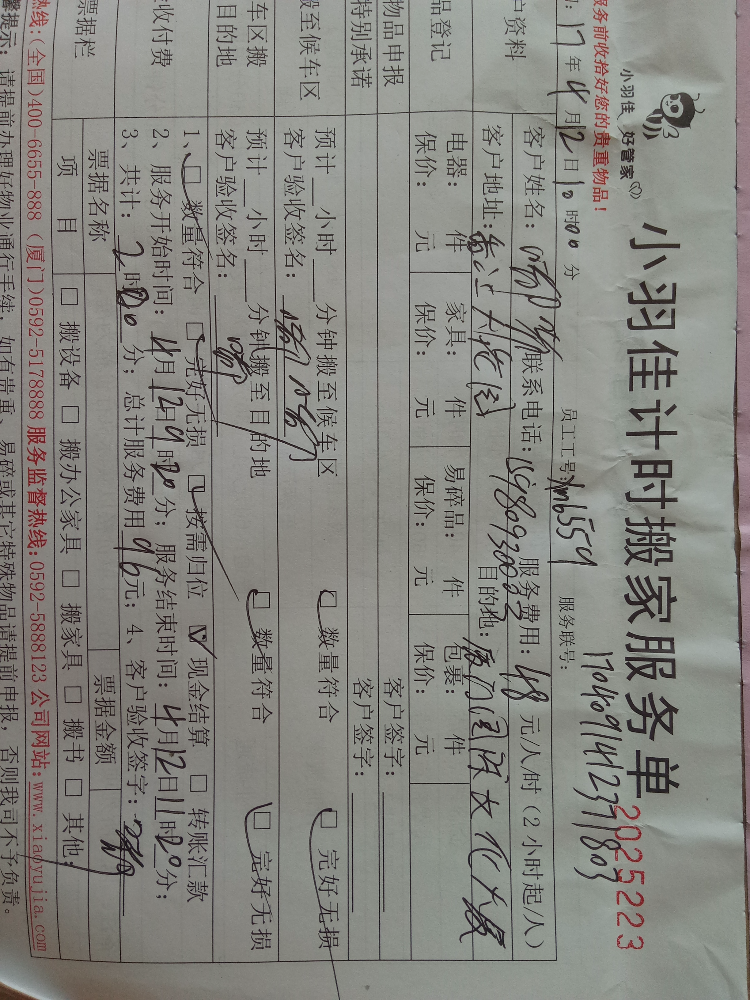 小羽佳 好管家
小羽佳计时搬家服务单
2025223
服务前收拾好您的贵重物品!
17年4月12日10时00分 员工工号: 服务联号: 1704091412371803
户资料
客户姓名: 联系电话: 服务费用: 48 元/人/时(2小时起/人)
客户地址: 目的地: 厦门国际文化大厦
品登记
电器: 件 家具: 件 易碎品: 件 包裹: 件
保价: 元 保价: 元 保价: 元 保价: 元
物品申报
客户签字:
特别承诺
客户签字:
搬至候车区
预计 小时 分钟搬至候车区 □ 数量符合 □ 完好无损
客户验收签名:
车区搬
目的地
预计 小时 分钟搬至目的地 □ 数量符合 □ 完好无损
客户验收签名:
收付费
1、□ 数量符合 □ 完好无损 □ 按需归位 ☑ 现金结算 □ 转账汇款
2、服务开始时间: 4月12日9时20分; 服务结束时间: 4月12日11时20分;
3、共计: 2时00分; 总计服务费用 96元; 4、客户验收签字:
票据栏
票据名称 票据金额
项目 □ 搬设备 □ 搬办公家具 □ 搬家具 □ 搬书 □ 其他:
热线:(全国)400-6655-888 (厦门)0592-5178888 服务监督热线:0592-5888123 公司网站:www.xiaoyujia.com
馨提示: 请提前办理好物业通行手续, 如有贵重、易碎或其它特殊物品请提前申报, 否则我司不予负责。